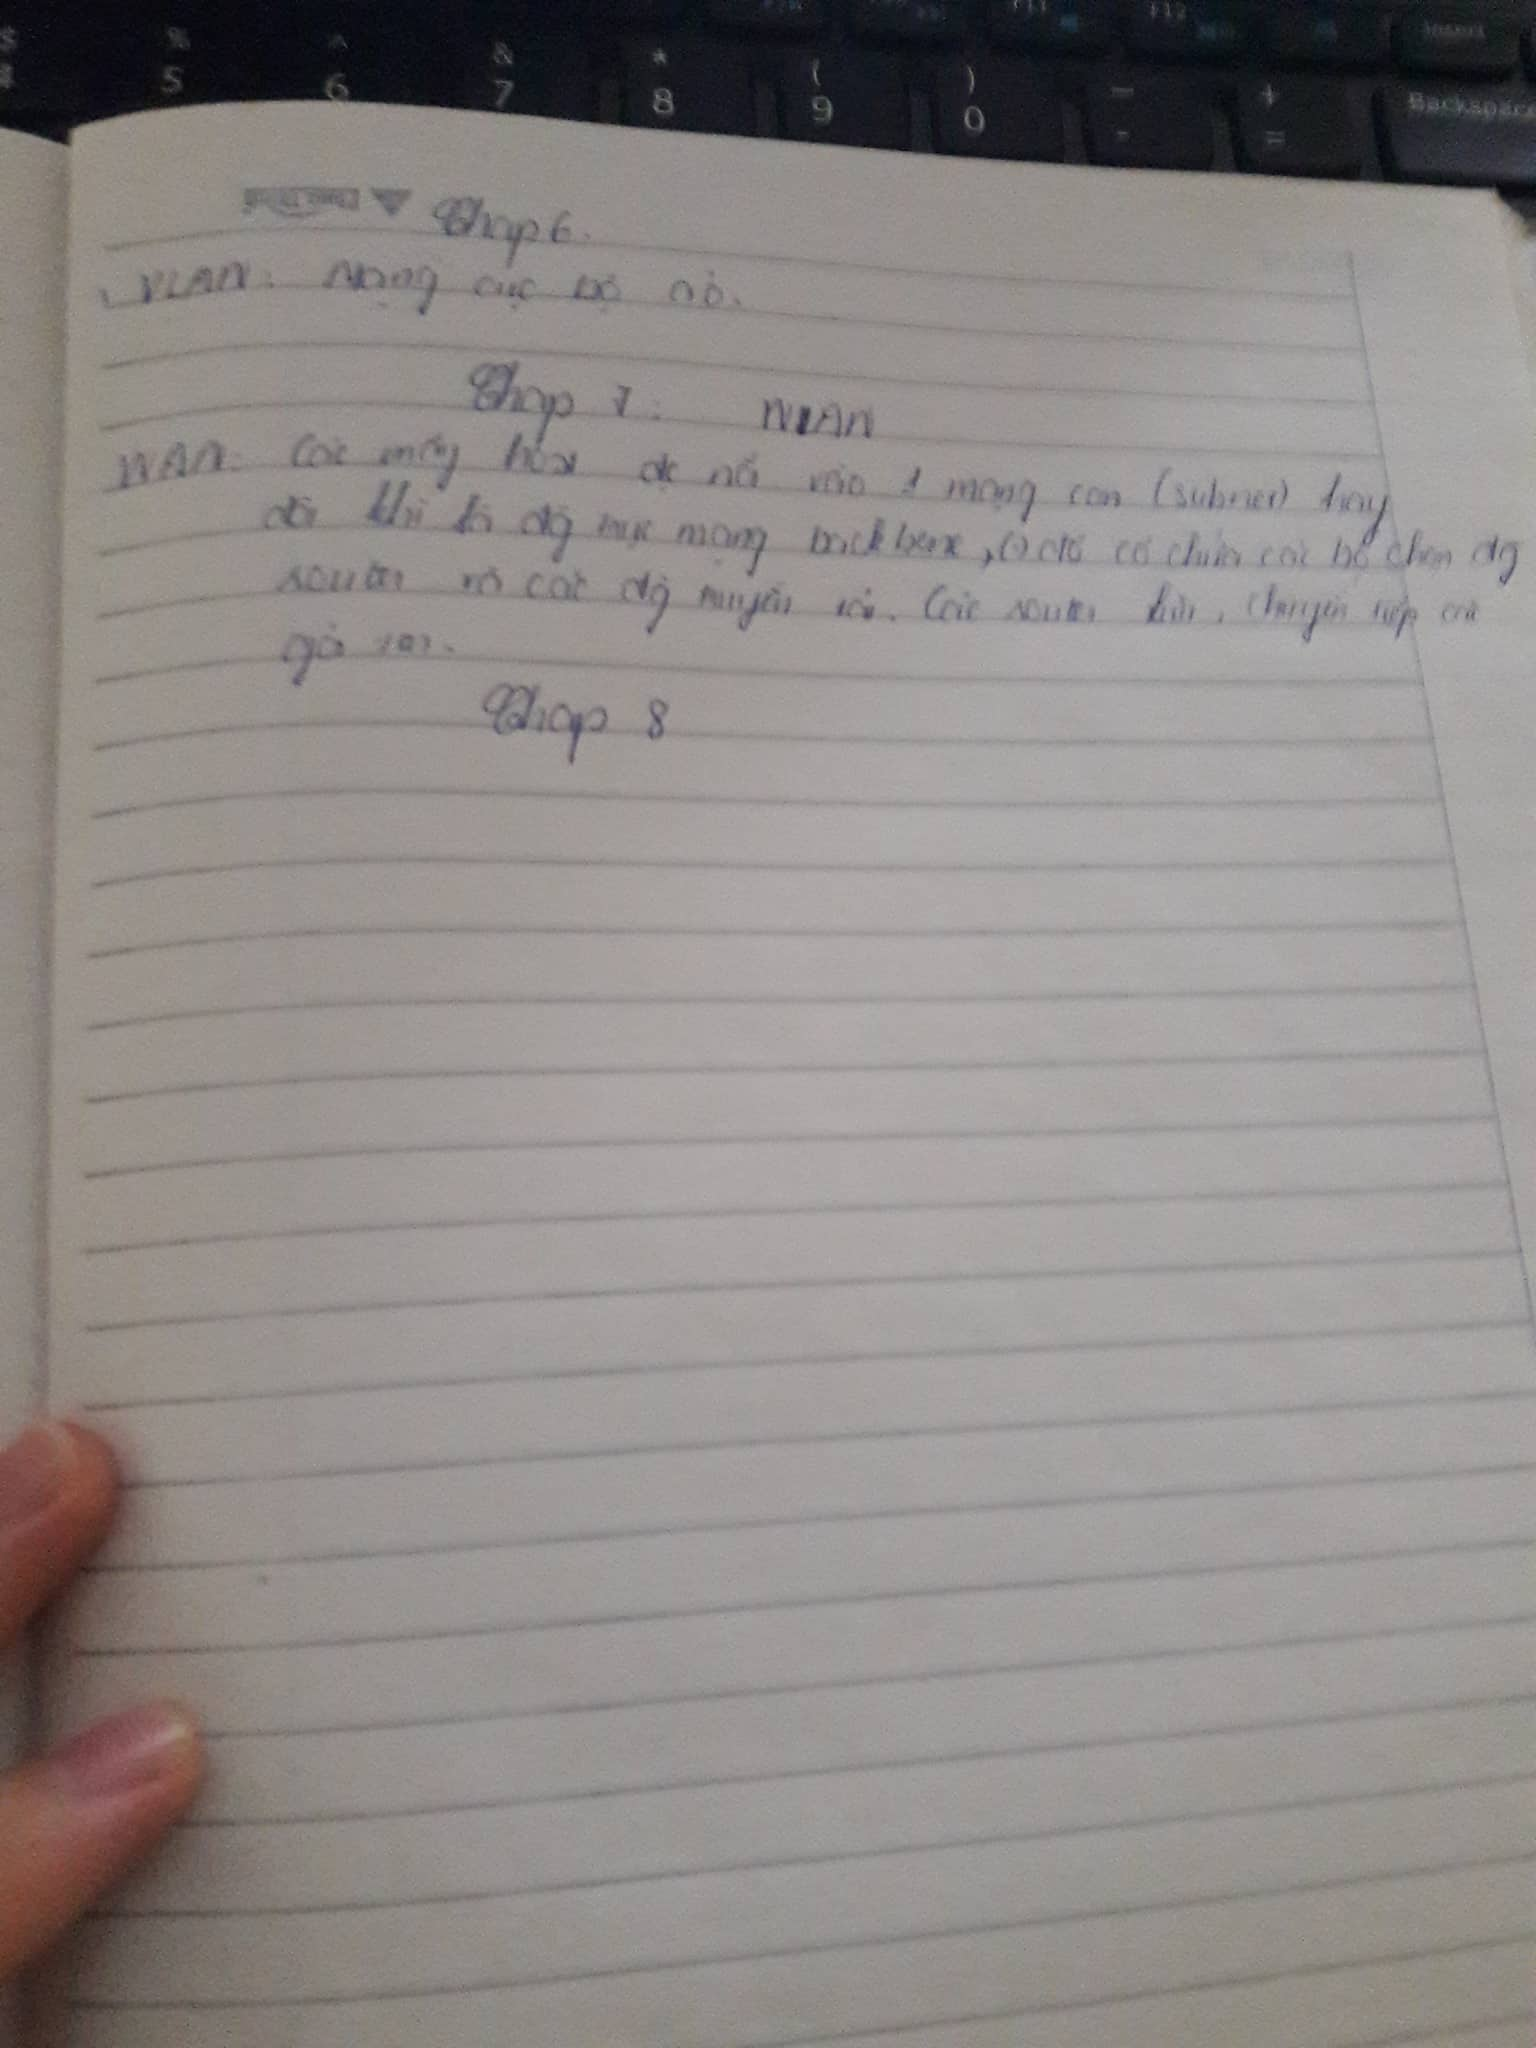 $ % ^ & * ( ) _ +
4 5 6 7 8 9 0 - = Backspace
F11 F12 Insert
Chap 6.
VLAN: Mạng cục bộ ảo.
Chap 7: WAN
WAN: Các máy host đc nối vào 1 mạng con (subnet) hay
đôi khi là đg trục mạng backbone, () đó có chứa các bộ chọn đg
router và các đg truyền tải. Các router lưu, chuyển tiếp các
gói tin.
Chap 8